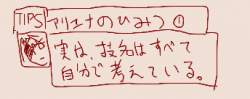 TIPS アリエナのひみつ①
実は、技名はすべて
自分で考えている。